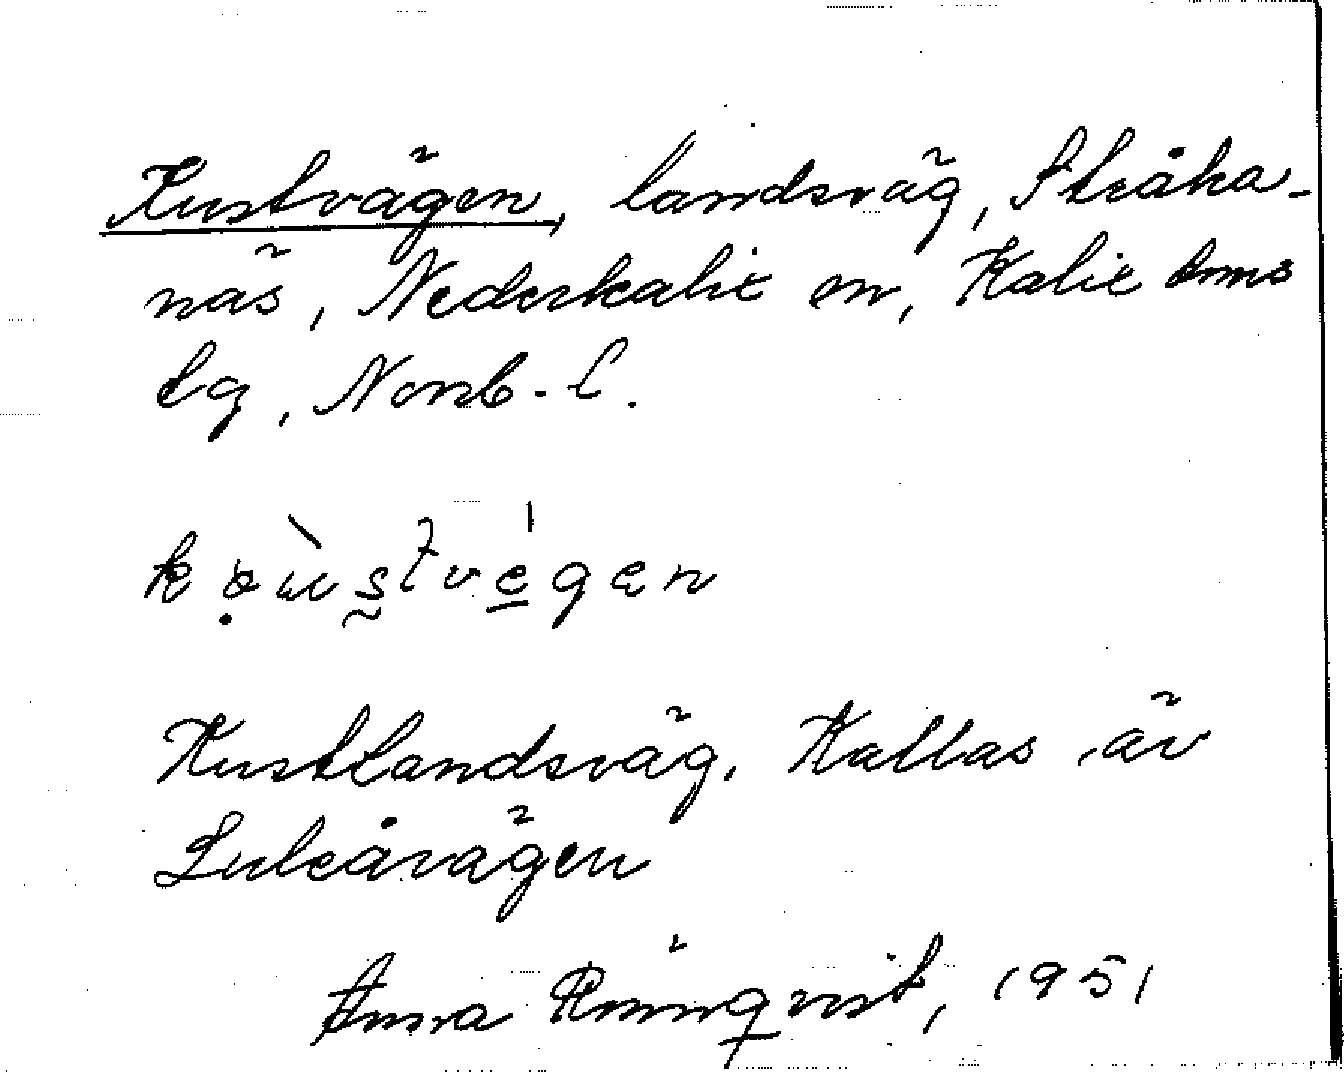 Kustvägen, landsväg, Stråka-
näs, Nederkalix sn, Kalix doms
lg, Norrb. l.
Kustlandsväg. Kallas äv
Luleåvägen
Anna Rönnqvist, 1951